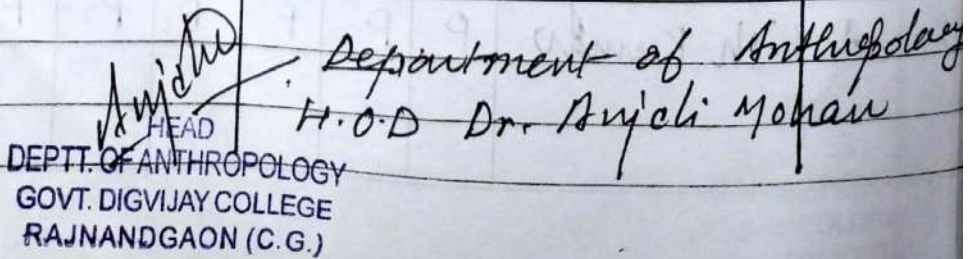 Department of Anthropology
H.O.D Dr. Anjali Mohan
Anjali
HEAD
DEPTT. OF ANTHROPOLOGY
GOVT. DIGVIJAY COLLEGE
RAJNANDGAON (C.G.)